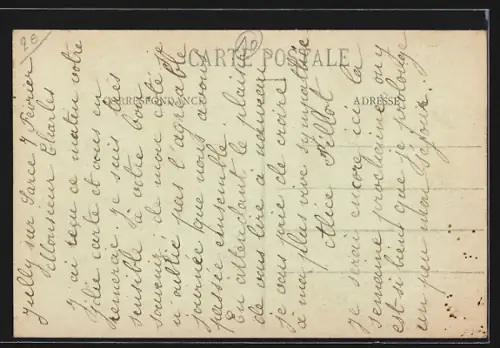 28
CARTE POSTALE
CORRESPONDANCE
ADRESSE
Jully sur Sarce 7 Fevrier
Monsieur Charles
J'ai reçu ce matin votre
jolie carte et vous en
remercie. Je suis très
sensible à votre bon
souvenir, de mon côté je
n'oublie pas l'agréable
journée que nous avons
passée ensemble.
En attendant le plaisir
de vous lire à nouveau
je vous prie de croire
à ma plus vive sympathie
Alice Pillot
Je serai encore ici la
semaine prochaine on y
est si bien que je prolonge
un peu mon séjour.